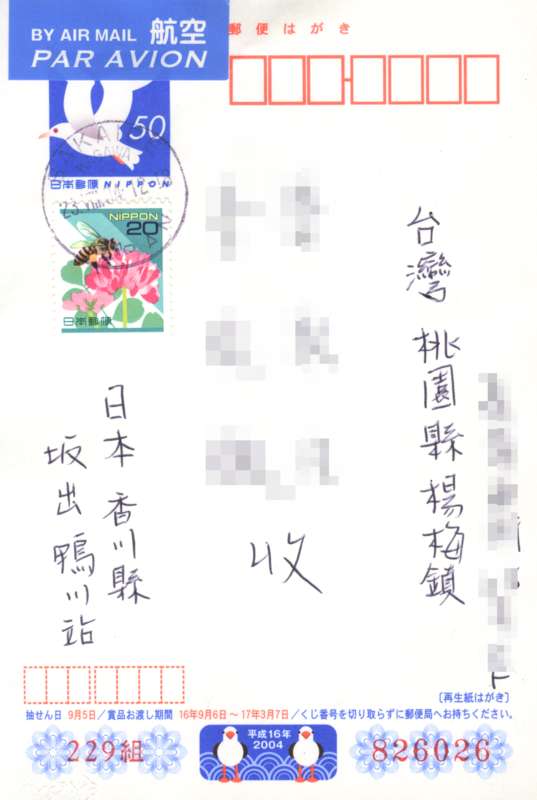 BY AIR MAIL 航空
PAR AVION
郵便はがき
50
日本郵便 NIPPON
NIPPON
20
日本郵便
台灣 桃園縣 楊梅鎮
收
日本 香川縣
坂出 鴨川站
〔再生紙はがき〕
抽せん日 9月5日／賞品お渡し期間 16年9月6日～17年3月7日／くじ番号を切り取らずに郵便局へお持ちください。
229組
平成16年
2004
826026